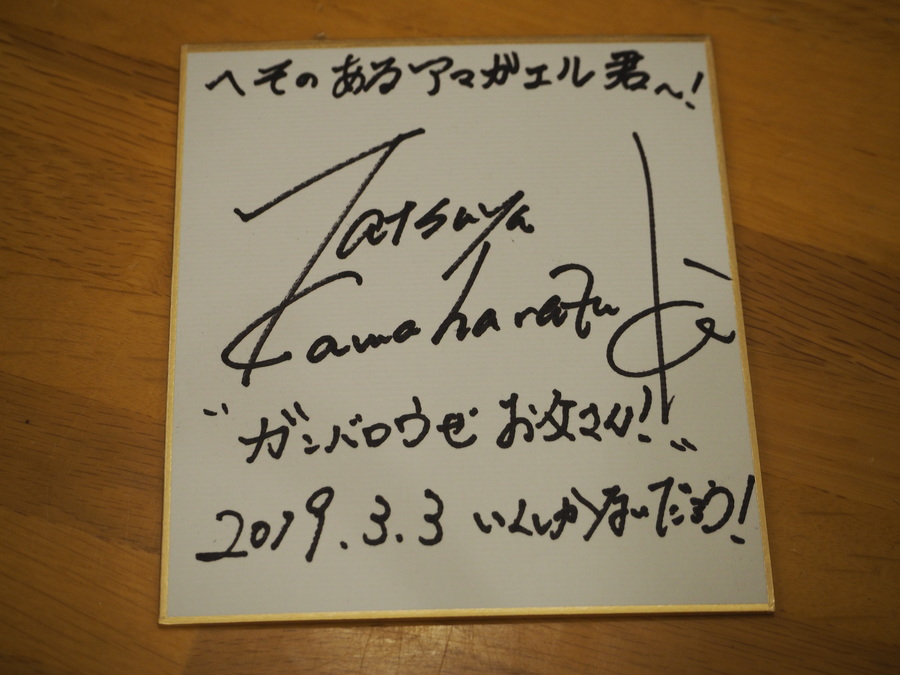 へそのあるアマガエル君〜!
Tatsuya
Kawaharazuka
"ガンバロウゼ お父さん!!"
2019.3.3 いくしかないだろう!